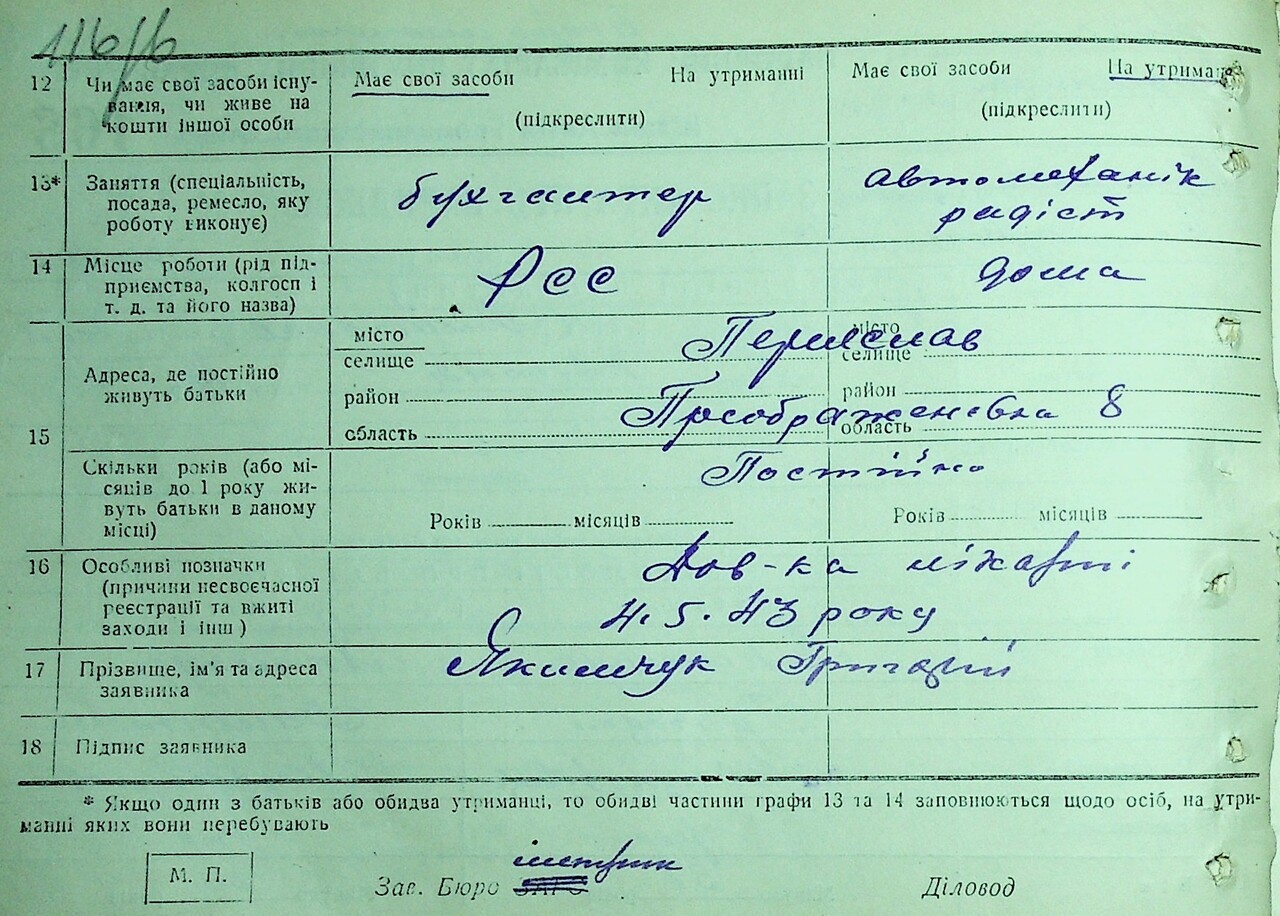 116/6
12 Чи має свої засоби існу-
вання, чи живе на
кошти іншої особи
Має свої засоби На утриманні
(підкреслити)
Має свої засоби На утриманні
(підкреслити)
13* Заняття (спеціальність,
посада, ремесло, яку
роботу виконує)
бухгалтер
автомеханік
радіст
14 Місце роботи (рід під-
приємства, колгосп і
т. д. та його назва)
РСС
дома
15 Адреса, де постійно
живуть батьки
місто
селище
район
область
місто
селище
район
область
Переяслав
Преображеновка 8
Скільки років (або мі-
сяців до 1 року жи-
вуть батьки в даному
місці)
Постійно
Років місяців
Років місяців
16 Особливі позначки
(причини несвоєчасної
реєстрації та вжиті
заходи і інш)
Дов-ка лікарні
4. 5. 43 року
17 Прізвище, ім'я та адреса
заявника
Якимчук Григорій
18 Підпис заявника
* Якщо один з батьків або обидва утриманці, то обидві частини графи 13 та 14 заповнюються щодо осіб, на утри-
манні яких вони перебувають
М. П.
Зав. Бюро ЗАГС
Діловод